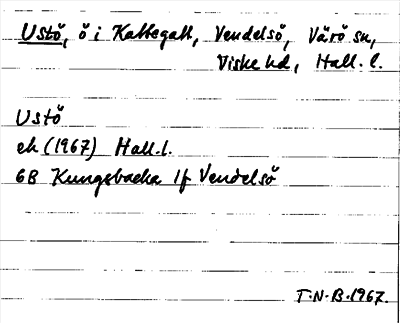 Ustö, ö i Kattegatt, Vendelsö, Värö sn,
Viske hd, Hall. l.
Ustö
ek (1967) Hall.l.
6B Kungsbacka 1f Vendelsö
T.N.B.1967.